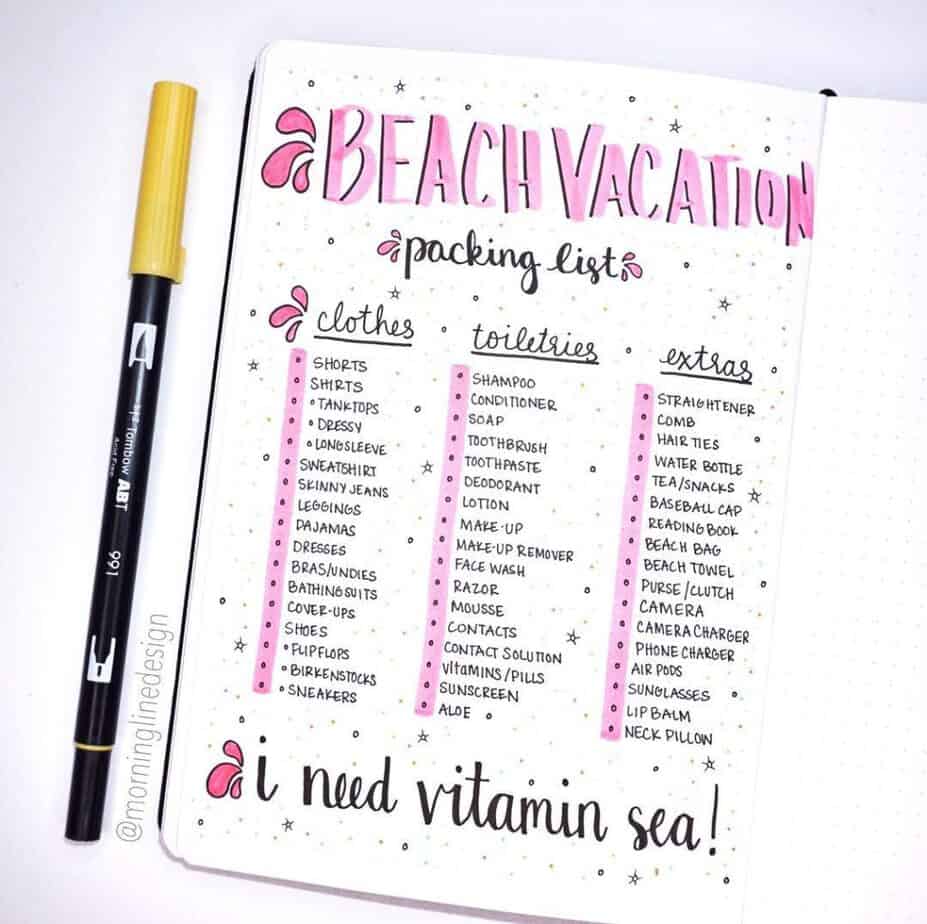 BEACH VACATION
packing list
clothes
SHORTS
SHIRTS
TANKTOPS
DRESSY
LONGSLEEVE
SWEATSHIRT
SKINNY JEANS
LEGGINGS
PAJAMAS
DRESSES
BRAS/UNDIES
BATHINGSUITS
COVER-UPS
SHOES
FLIPFLOPS
BIRKENSTOCKS
SNEAKERS
toiletries
SHAMPOO
CONDITIONER
SOAP
TOOTHBRUSH
TOOTHPASTE
DEODORANT
LOTION
MAKE-UP
MAKE-UP REMOVER
FACE WASH
RAZOR
MOUSSE
CONTACTS
CONTACT SOLUTION
VITAMINS/PILLS
SUNSCREEN
ALOE
extras
STRAIGHTENER
COMB
HAIR TIES
WATER BOTTLE
TEA/SNACKS
BASEBALL CAP
READING BOOK
BEACH BAG
BEACH TOWEL
PURSE/CLUTCH
CAMERA
CAMERA CHARGER
PHONE CHARGER
AIR PODS
SUNGLASSES
LIP BALM
NECK PILLOW
i need vitamin sea!
Tombow ABT
991
@morninglinedesign